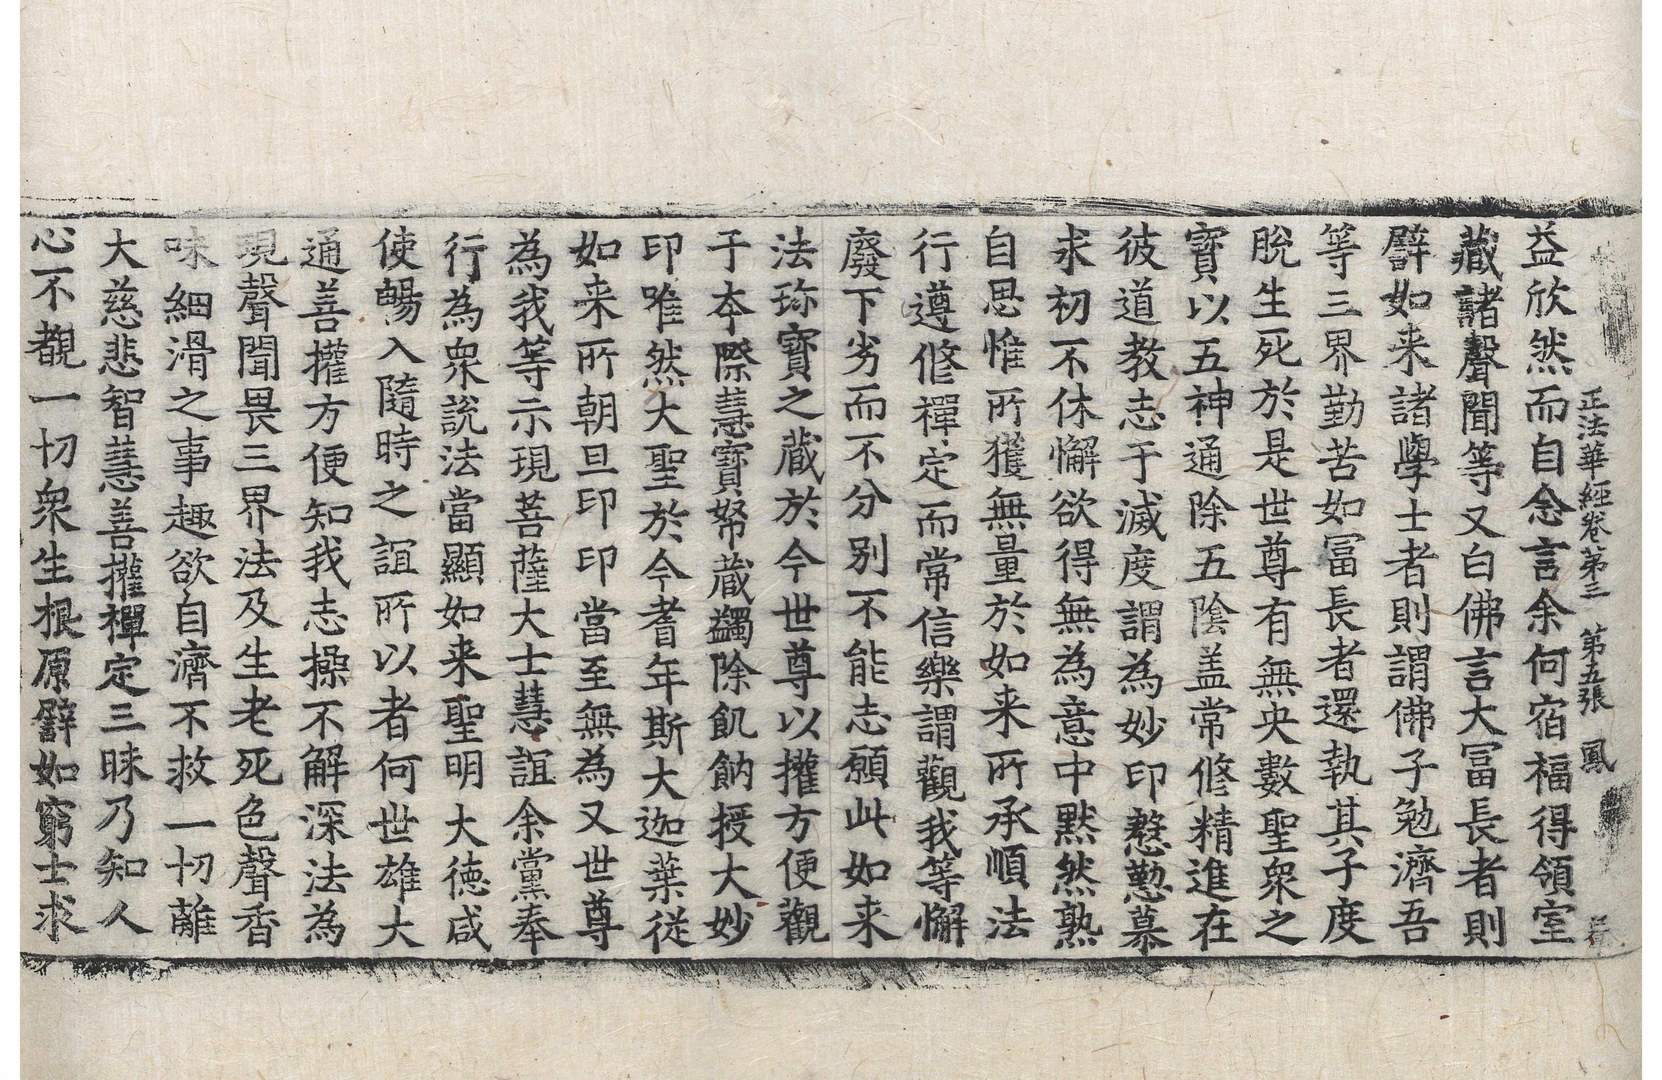 正法華經卷第三　第五張　鳳
益欣然而自念言余何宿福得領室
藏諸聲聞等又白佛言大冨長者則
譬如来諸學士者則謂佛子勉濟吾
等三界勤苦如冨長者還執其子度
脫生死於是世尊有無央數聖衆之
寳以五神通除五陰盖常修精進在
彼道教志于滅度謂為妙印慇懃慕
求初不休懈欲得無為意中默然熟
自思惟所獲無量於如来所承順法
行遵修禪定而常信樂謂觀我等懈
廢下劣而不分別不能志願此如来
法珎寳之藏於今世尊以權方便觀
于夲際慧寳帑藏蠲除飢餉授大妙
印唯然大聖於今耆年斯大迦葉從
如来所朝旦印印當至無為又世尊
為我等示現菩薩大士慧誼余黨奉
行為衆說法當顯如来聖明大徳咸
使暢入隨時之誼所以者何世雄大
通善權方便知我志操不解深法為
現聲聞畏三界法及生老死色聲香
味細滑之事趣欲自濟不救一切離
大慈悲智慧善權禪定三昧乃知人
心不覩一切衆生根原譬如窮士求